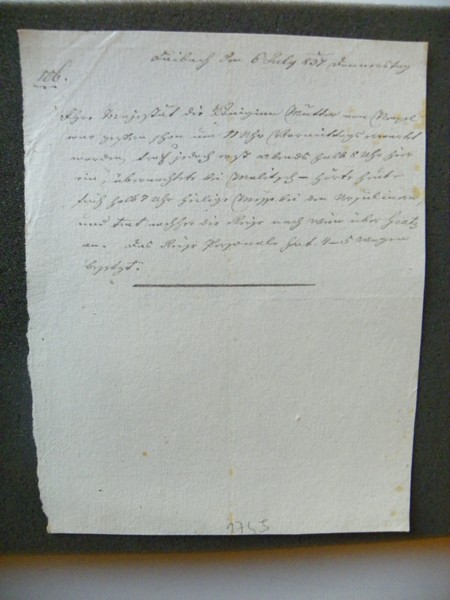 Laibach den 6 July 837 Donnerstag
126.
Ihre Majestät die Königinn Mutter von Neapel
war gestern schon um 11 Uhr Vormittags erwartet
worden, traf jedoch erst abends halb 8 Uhr hier
ein, übernachtete bei Malitsch – hörte heute
früh halb 7 Uhr heilige Messe bei den Ursulinen,
und trat nachher die Reise nach Wien über Gratz
an. Das Reise Personale hat Wagen
besetzt.
1745